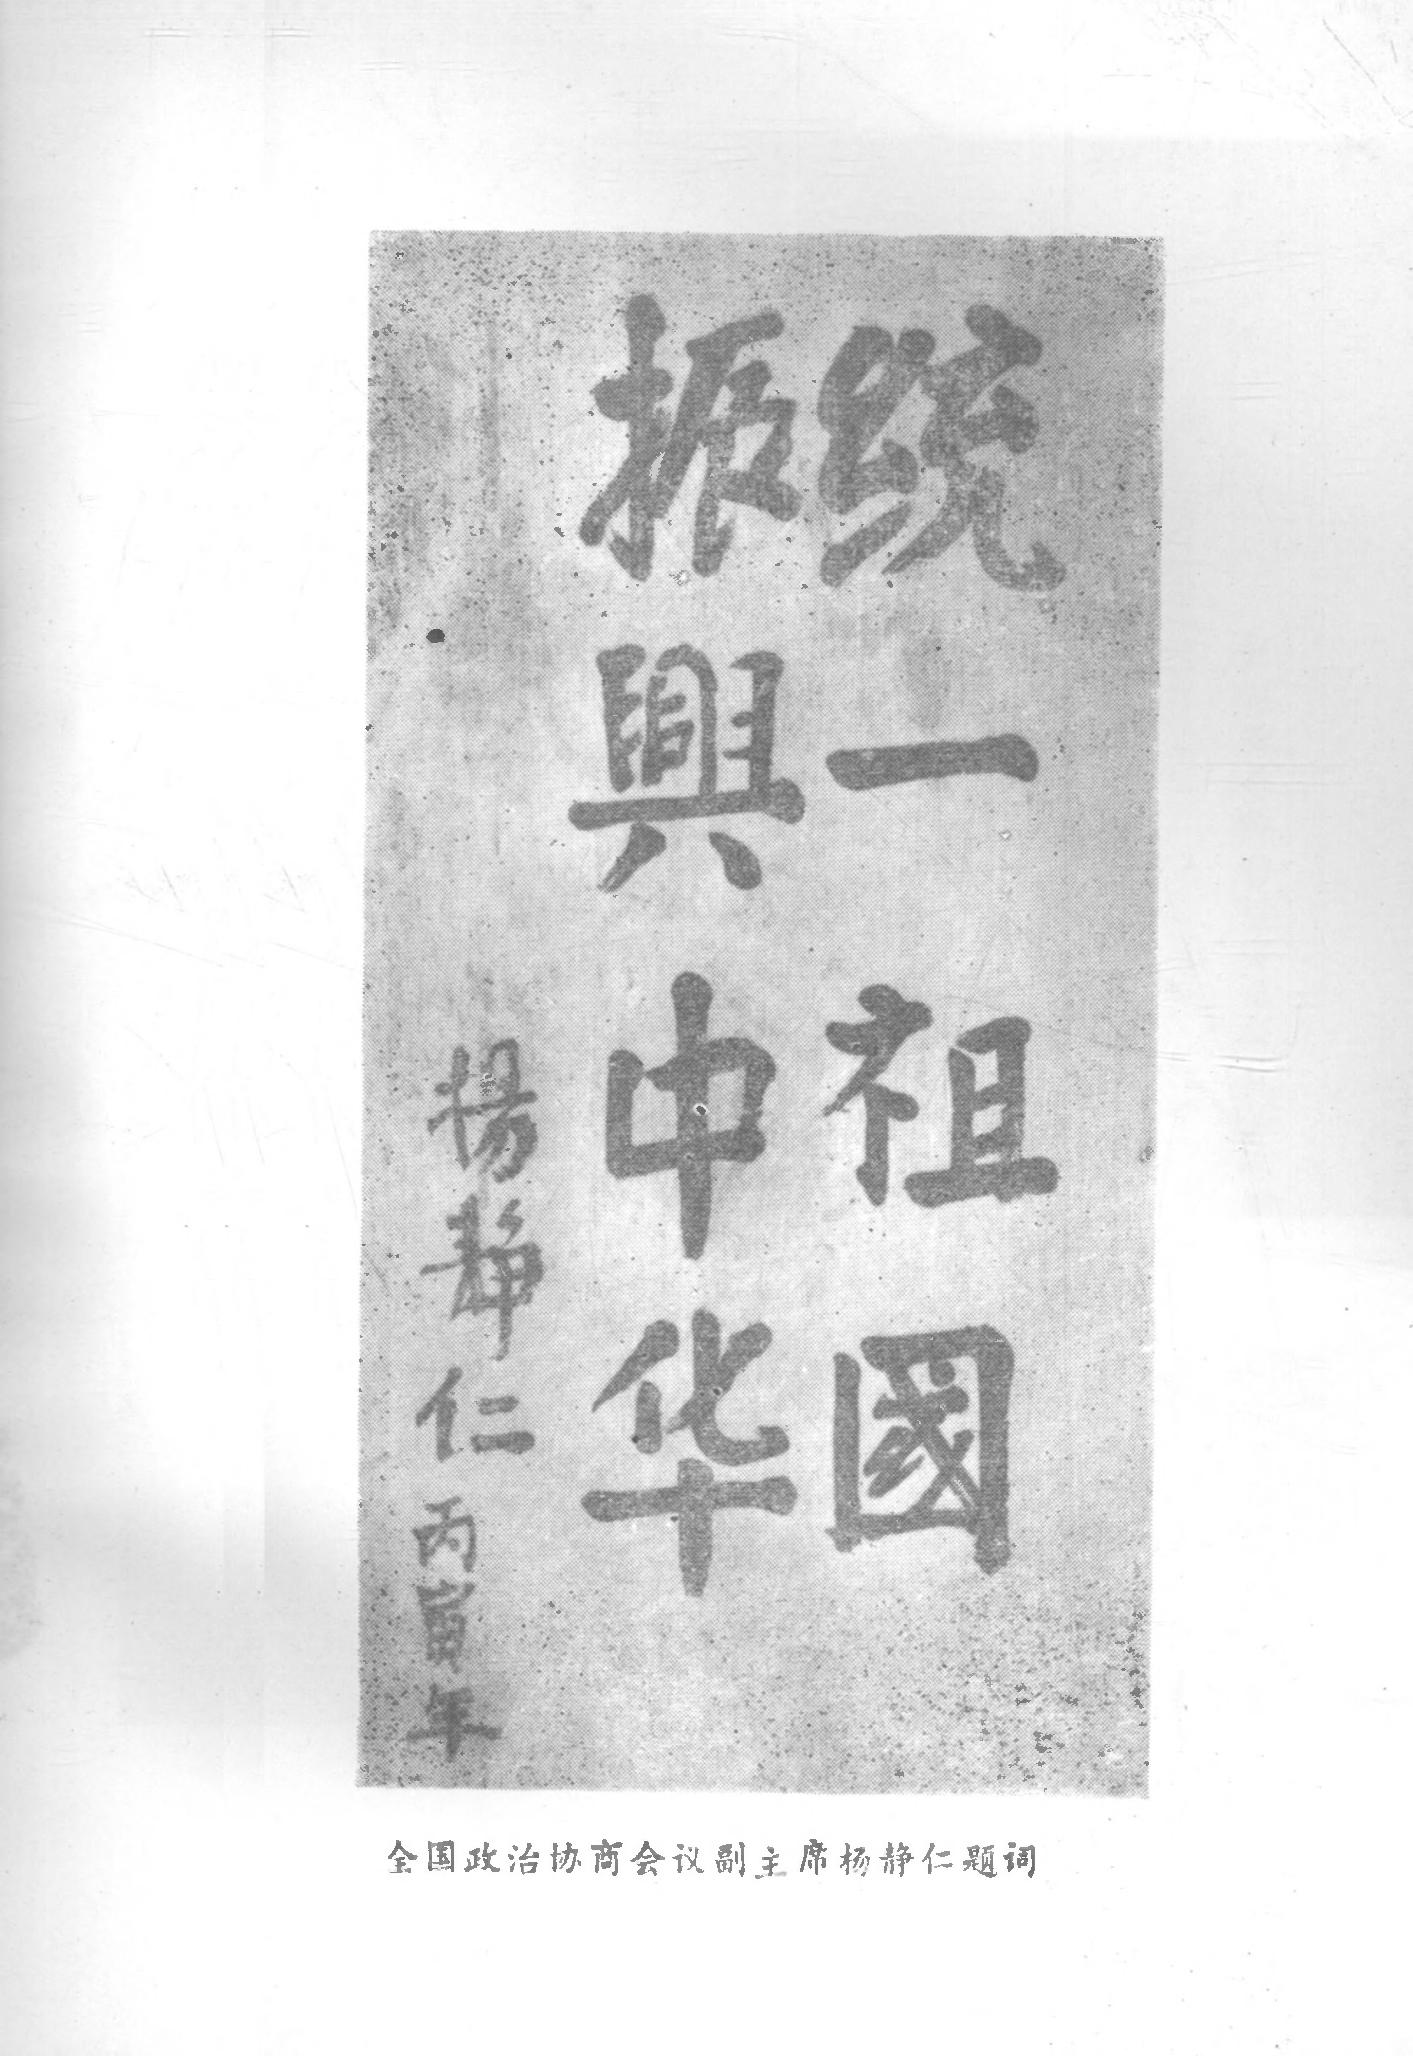 統一祖國
振興中华
楊静仁 丙寅年
全国政治协商会议副主席杨静仁题词